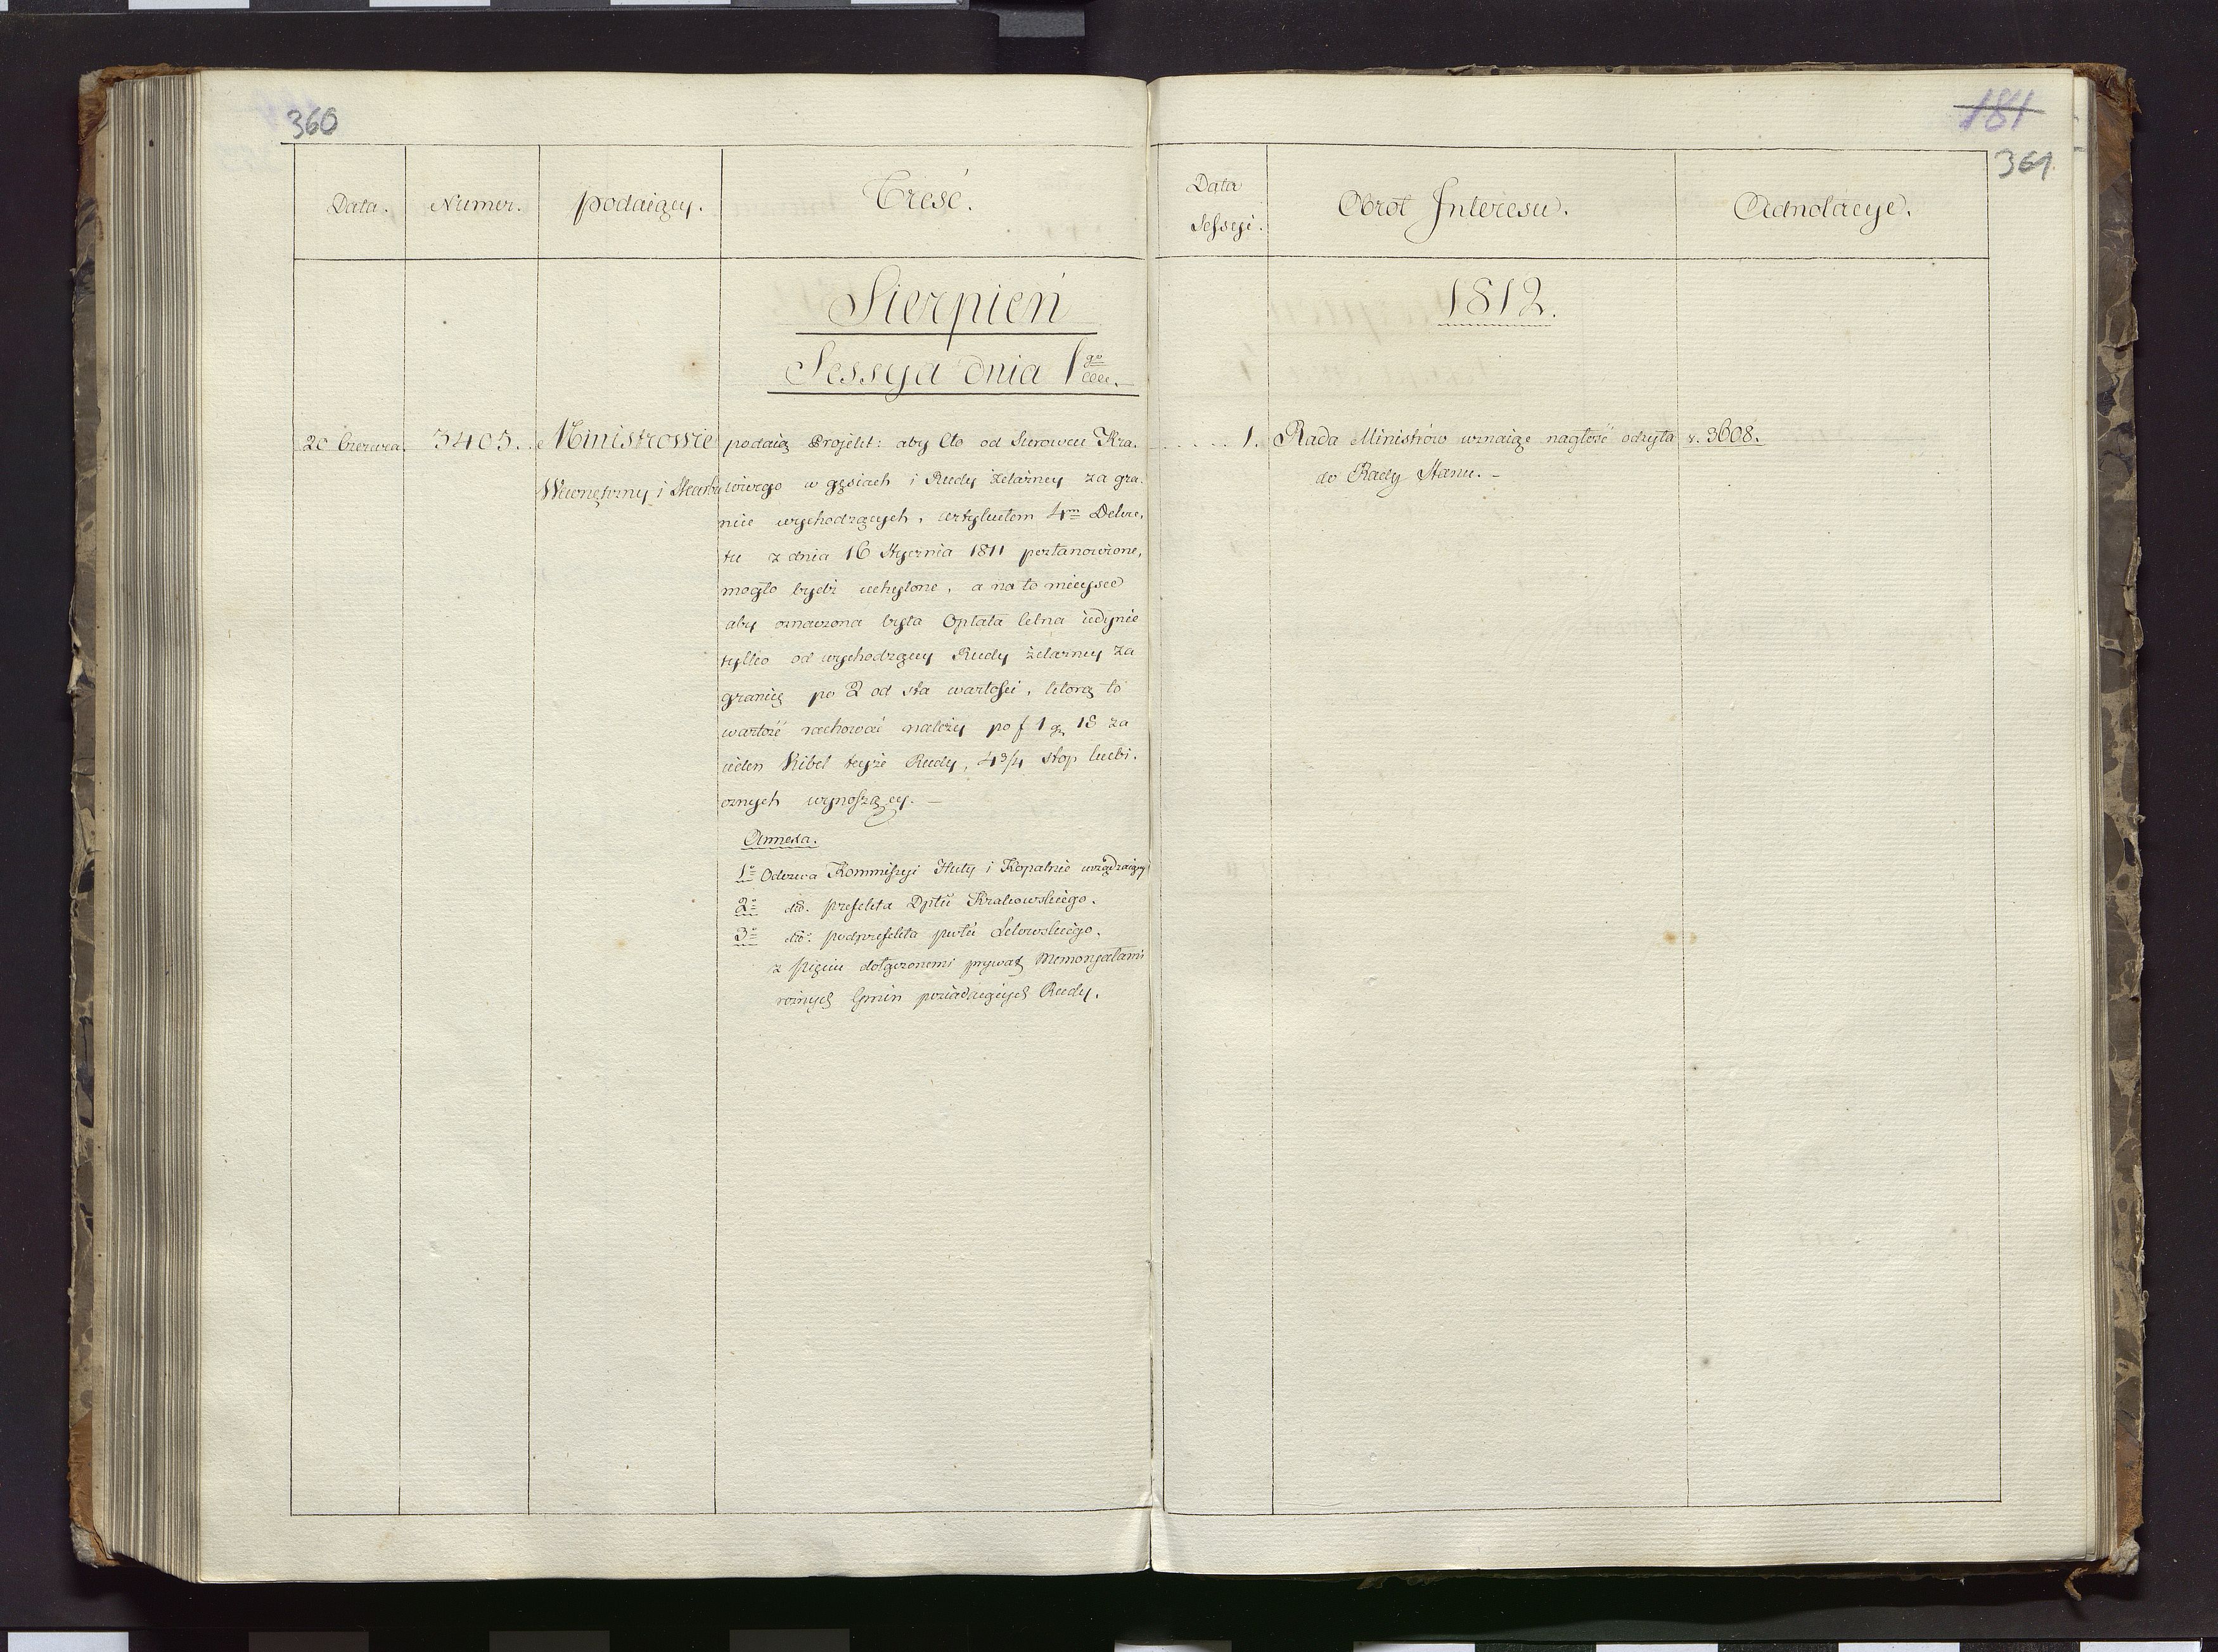 360
Data.
Numer.
podaiący.
Treść.
Sierpień
Sessya dnia 1go
20 Czerwca.
3405.
Ministrowie
Wewnętrzny i Skarbu
podaią Projekt: aby Cło od Surowcu Kra-
iowego w gęsiach i Rudy żelazney za gra-
nice wychodzących, artykułem 4m Dekre-
tu z dnia 16 Stycznia 1811 postanowione,
mogło bydź uchylone, a na to mieysce
aby oznaczona była Opłata celna iedynie
tylko od wychodzącey Rudy żelazney za
granicę po 2 od sta wartości, którą to
wartość rachować należy po f 1 gr 18 za
ieden Kibel teyże Rudy, 4 3/4 stop kubi-
cznych wynoszący. —
Annexa.
1o Odezwa Kommissyi Huty i Kopalnie urządzaiącey
2o dto. prefekta Dpttu Krakowskiego.
3o dto. podprefekta pwtu Lelowskiego.
z pięciu dołączonemi prywat Memoryałami
różnych Gmin posiadaiących Rudy.
181
361.
Data
Sessyi.
Obrót Interesu.
Adnotacye.
1812.
. . . . 1.
Rada Ministrów uznaiąc nagłość odsyła
do Rady Stanu. —
v. 3608.